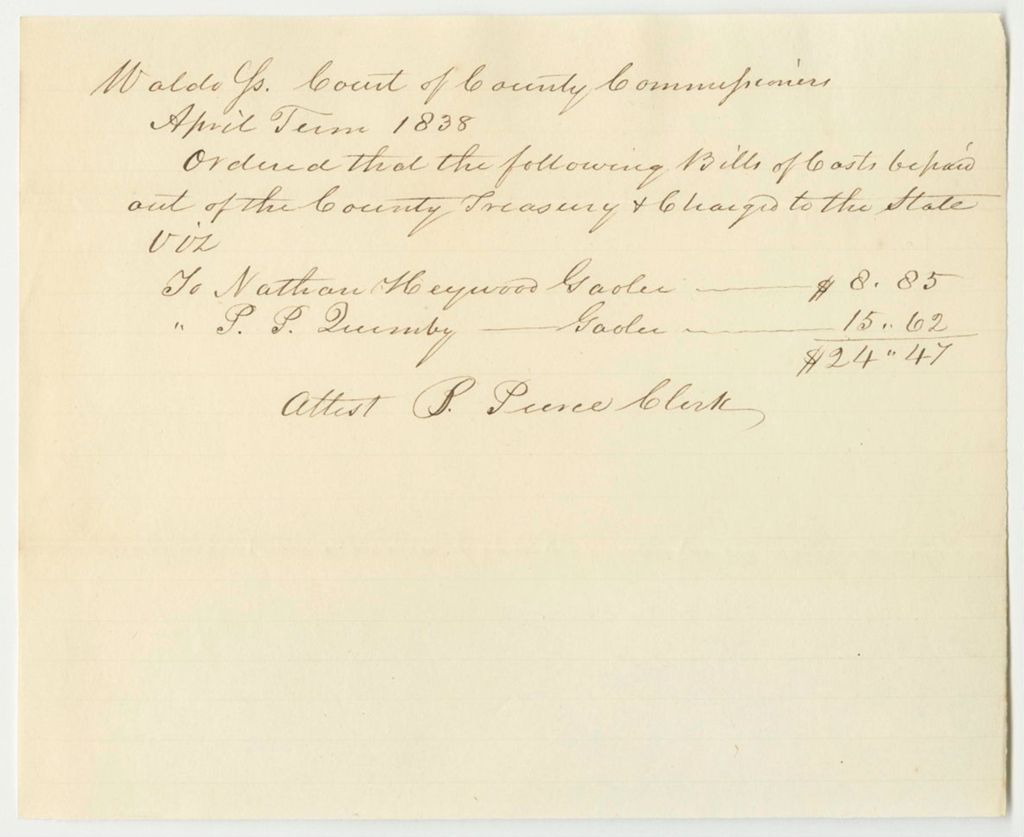 Waldo Ss. Court of County Commissioners
April Term 1838
Ordered that the following Bills of Costs be paid
out of the County Treasury & Charged to the State
Viz
To Nathan Heywood Gaoler $8.85
" P. P. Quimby Gaoler 15.62
$24"47
Attest P. Pierce Clerk